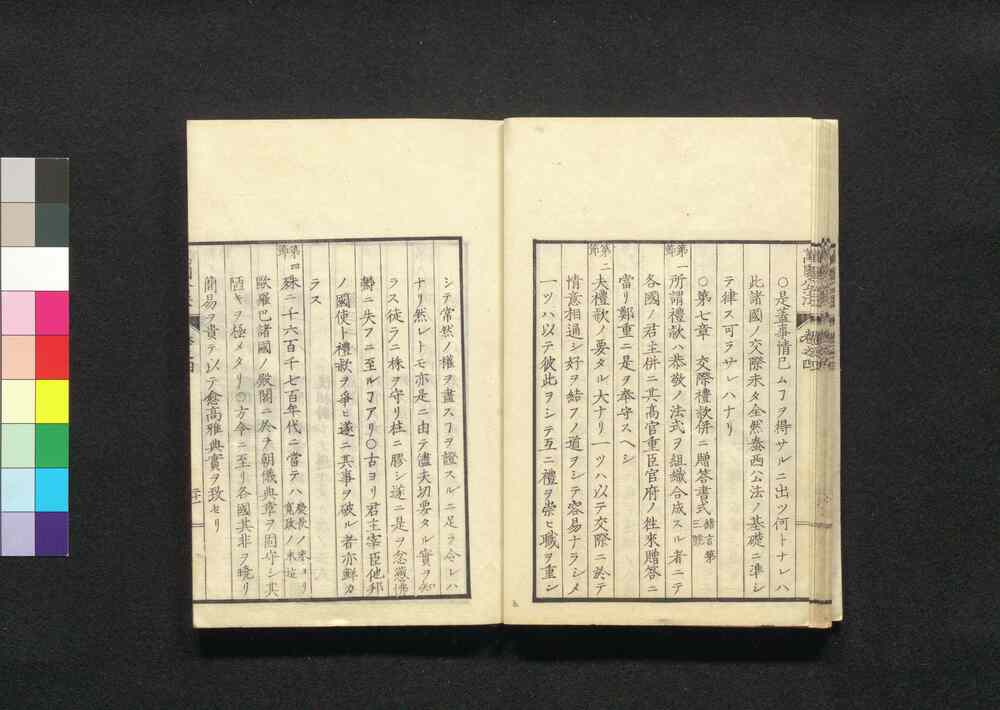 ○是蓋事情已ムヿヲ得サルニ出ツ何トナレハ
此諸國ノ交際未タ全然泰西公法ノ基礎ニ準シ
テ律ス可ラサレハナリ
○第七章 交際禮款併ニ贈答書式 緒言第三號
第一節 所謂禮款ハ恭敬ノ法式ヲ組織合成スル者ニテ
各國ノ君主併ニ其高官重臣官府ノ往來贈答ニ
當リ鄭重ニ是ヲ奉守スヘシ
第二節 夫禮款ノ要タル大ナリ一ツハ以テ交際ニ於テ
情意相通シ好ヲ結フノ道ヲシテ容易ナラシメ
一ツハ以テ彼此ヲシテ互ニ禮ヲ崇ヒ職ヲ重シ
シテ常然ノ權ヲ盡スヿヲ證スルニ足ラ令レハ
ナリ然レトモ亦是ニ由テ儘夫切要タル實ヲ知
ラス徒ラニ株ヲ守リ柱ニ膠シ遂ニ是ヲ忿懣
ニ失フニ至ルヿアリ○古ヨリ君主宰臣他邦
ノ國使ト禮款ヲ爭ヒ遂ニ其事ヲ破ル者亦鮮カ
ラス
第四節 殊ニ千六百千七百年代ニ當テハ 慶長ノ末ヨリ寛政ノ末迄
歐羅巴諸國ノ殿閣ニ於テ朝儀典章ヲ固守シ其
陋キヲ極メタリ○方今ニ至リ各國其非ヲ曉リ
簡易ヲ貴テ以テ愈高雅典實ヲ致セリ